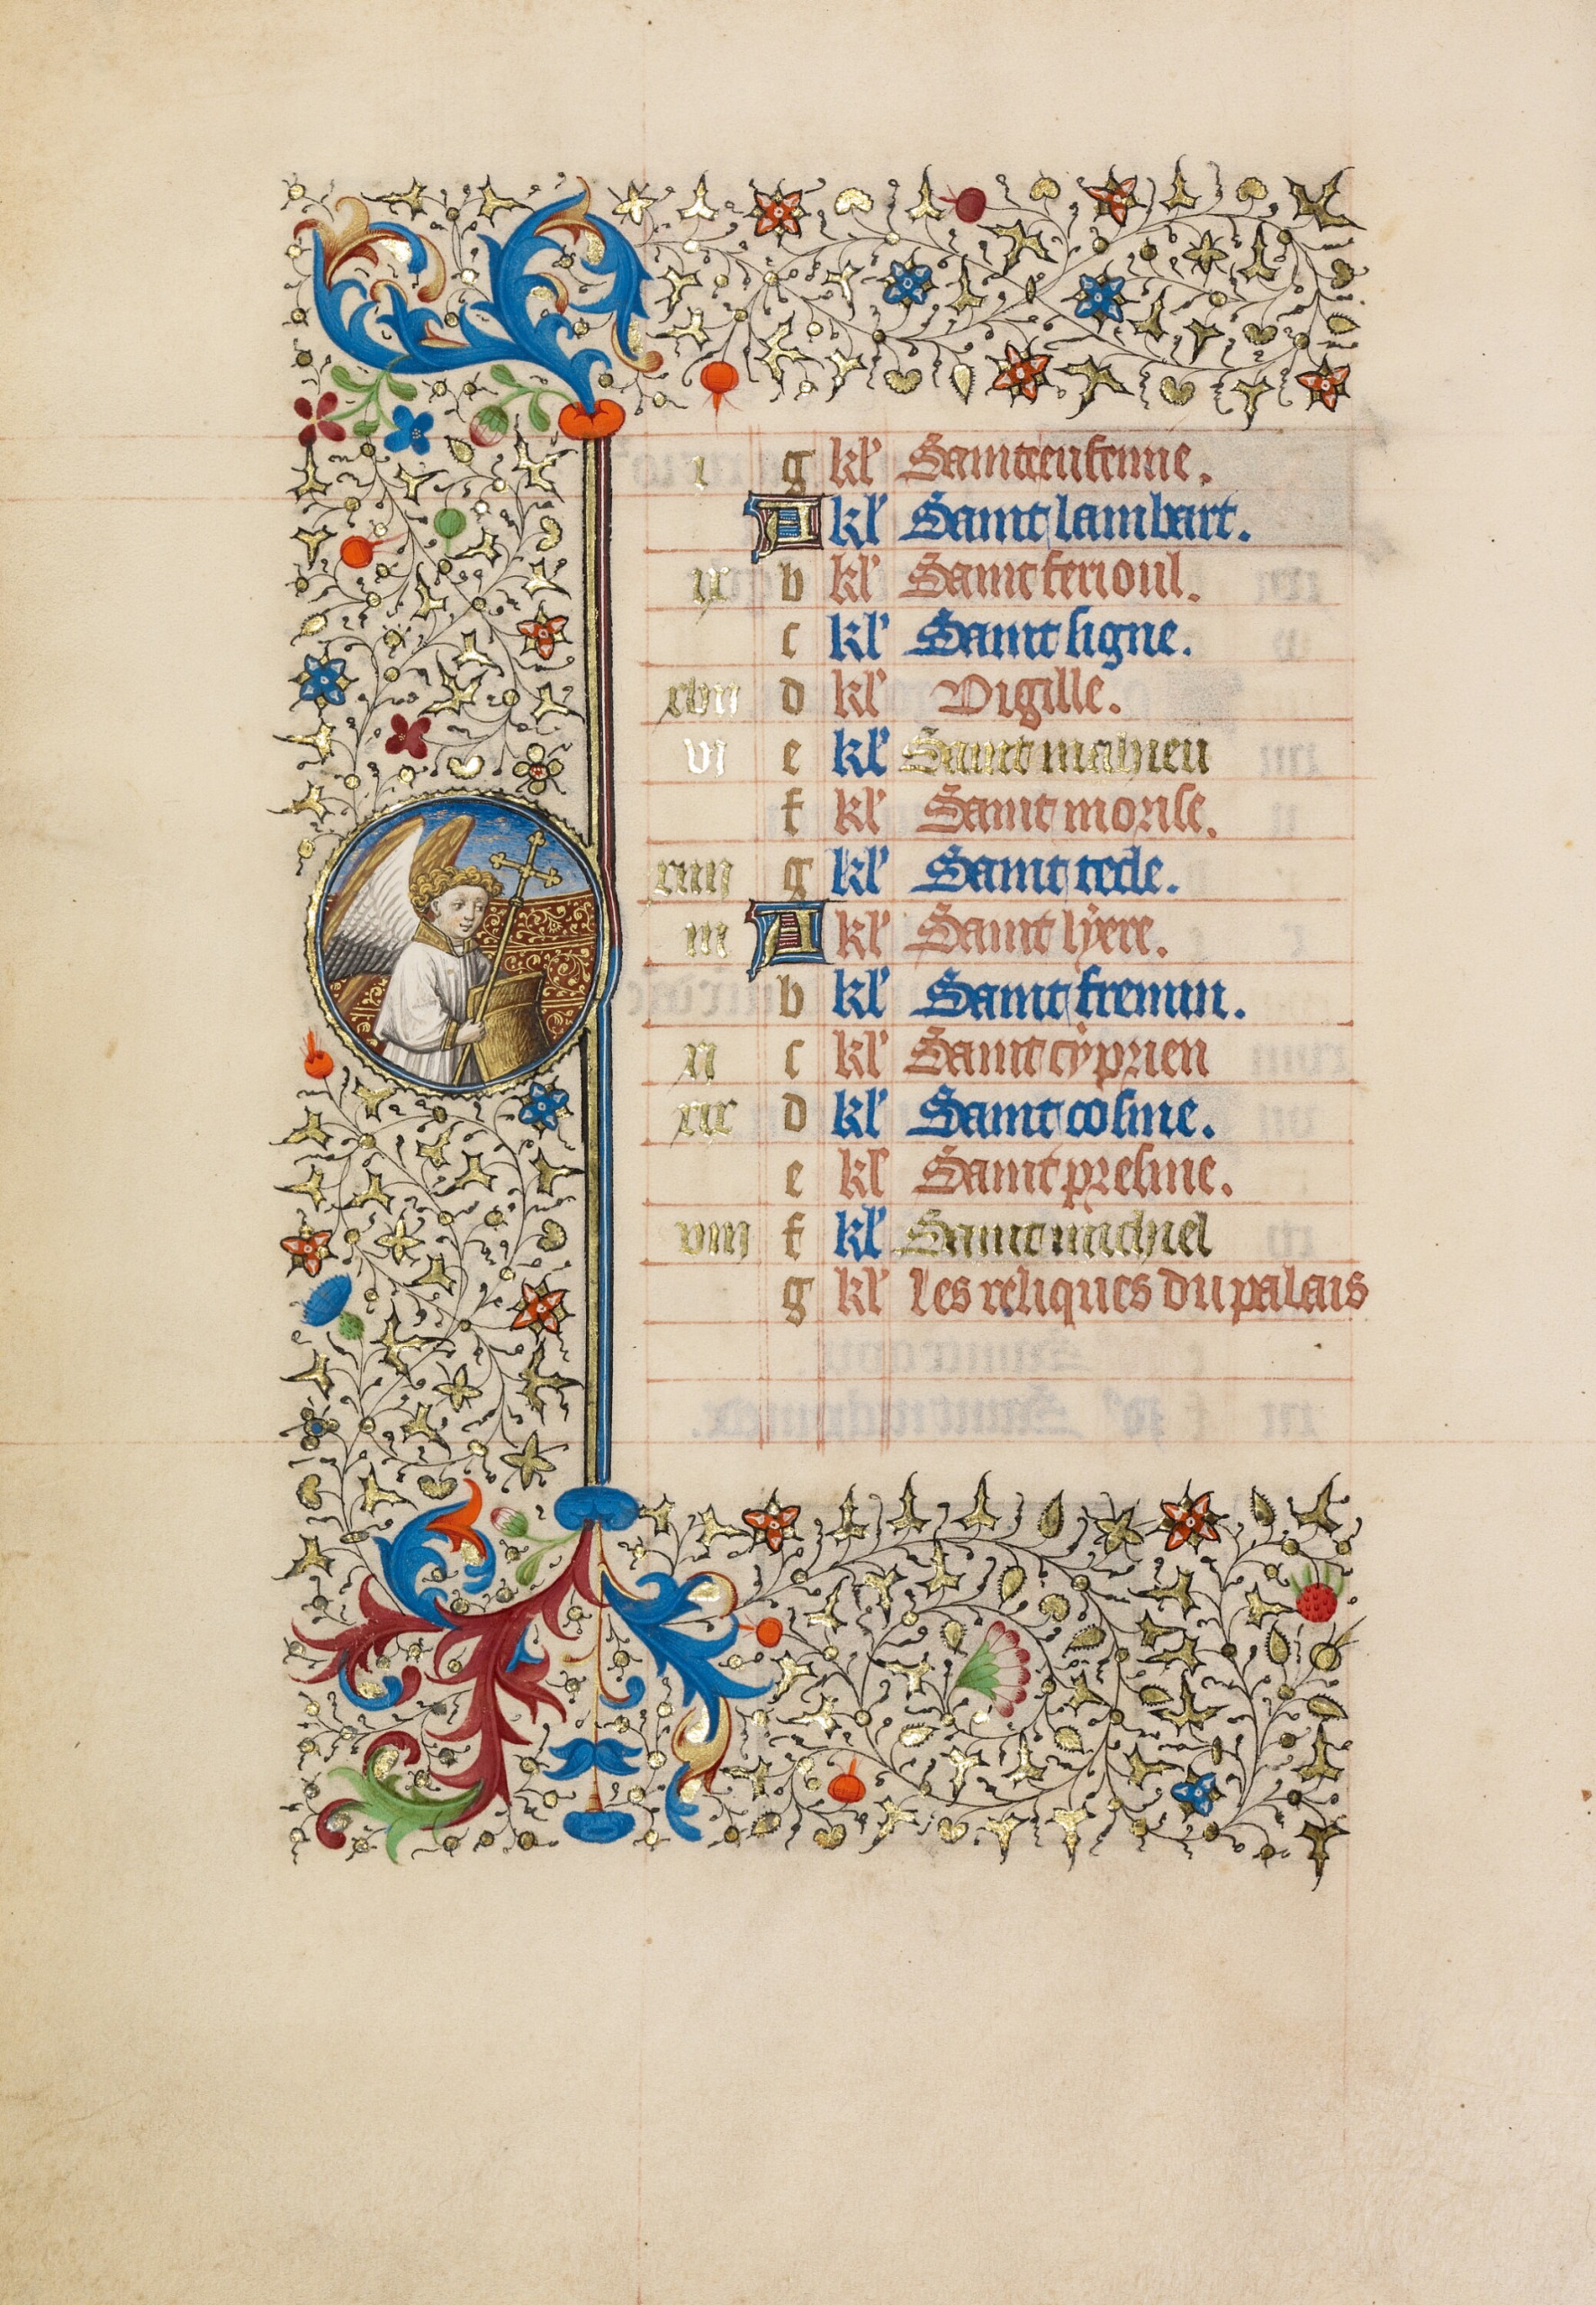 i g kl' Saincte eufemie.
A kl' Saint lambart.
ix b kl' Saint ferioul.
c kl' Saint signe.
xvii d kl' Vigille.
vi e kl' Saint mahieu
f kl' Saint morise.
xiiii g kl' Saint tecle.
iii A kl' Saint lyere.
b kl' Saint fremin.
xi c kl' Saint cyprien
xix d kl' Saint cosme.
e kl' Saint presme.
viii f kl' Saint michiel
g kl' les reliques du palais